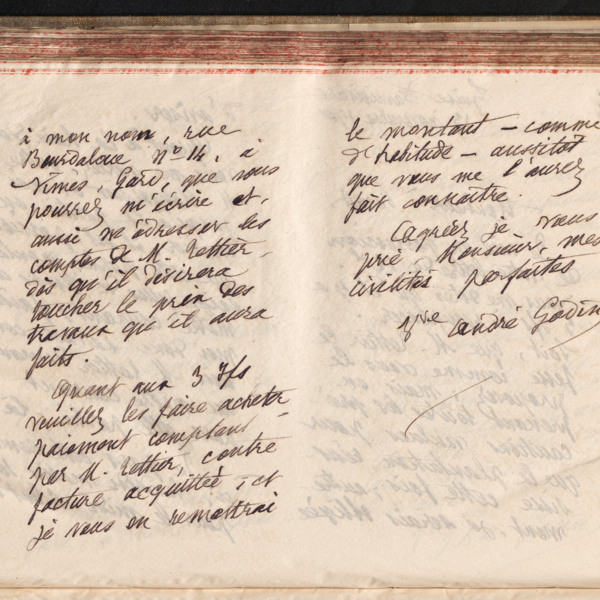 à mon nom, rue
Bourdaloue Nº 14, à
Nîmes, Gard, que vous
pourrez m'écrire et,
aussi m'adresser les
comptes de M. Lettier
dès qu'il désirera
toucher le prix des
travaux qu'il aura
faits.
Quant aux 3 Ifs
veuillez les faire acheter
paiement comptant
par M. Lettier, contre
facture acquittée, et
je vous en remettrai
le montant – comme
d'habitude – aussitôt
que vous me l'aurez
fait connaître.
Agréez je vous
prie Monsieur, mes
civilités parfaites
Vve André Godin